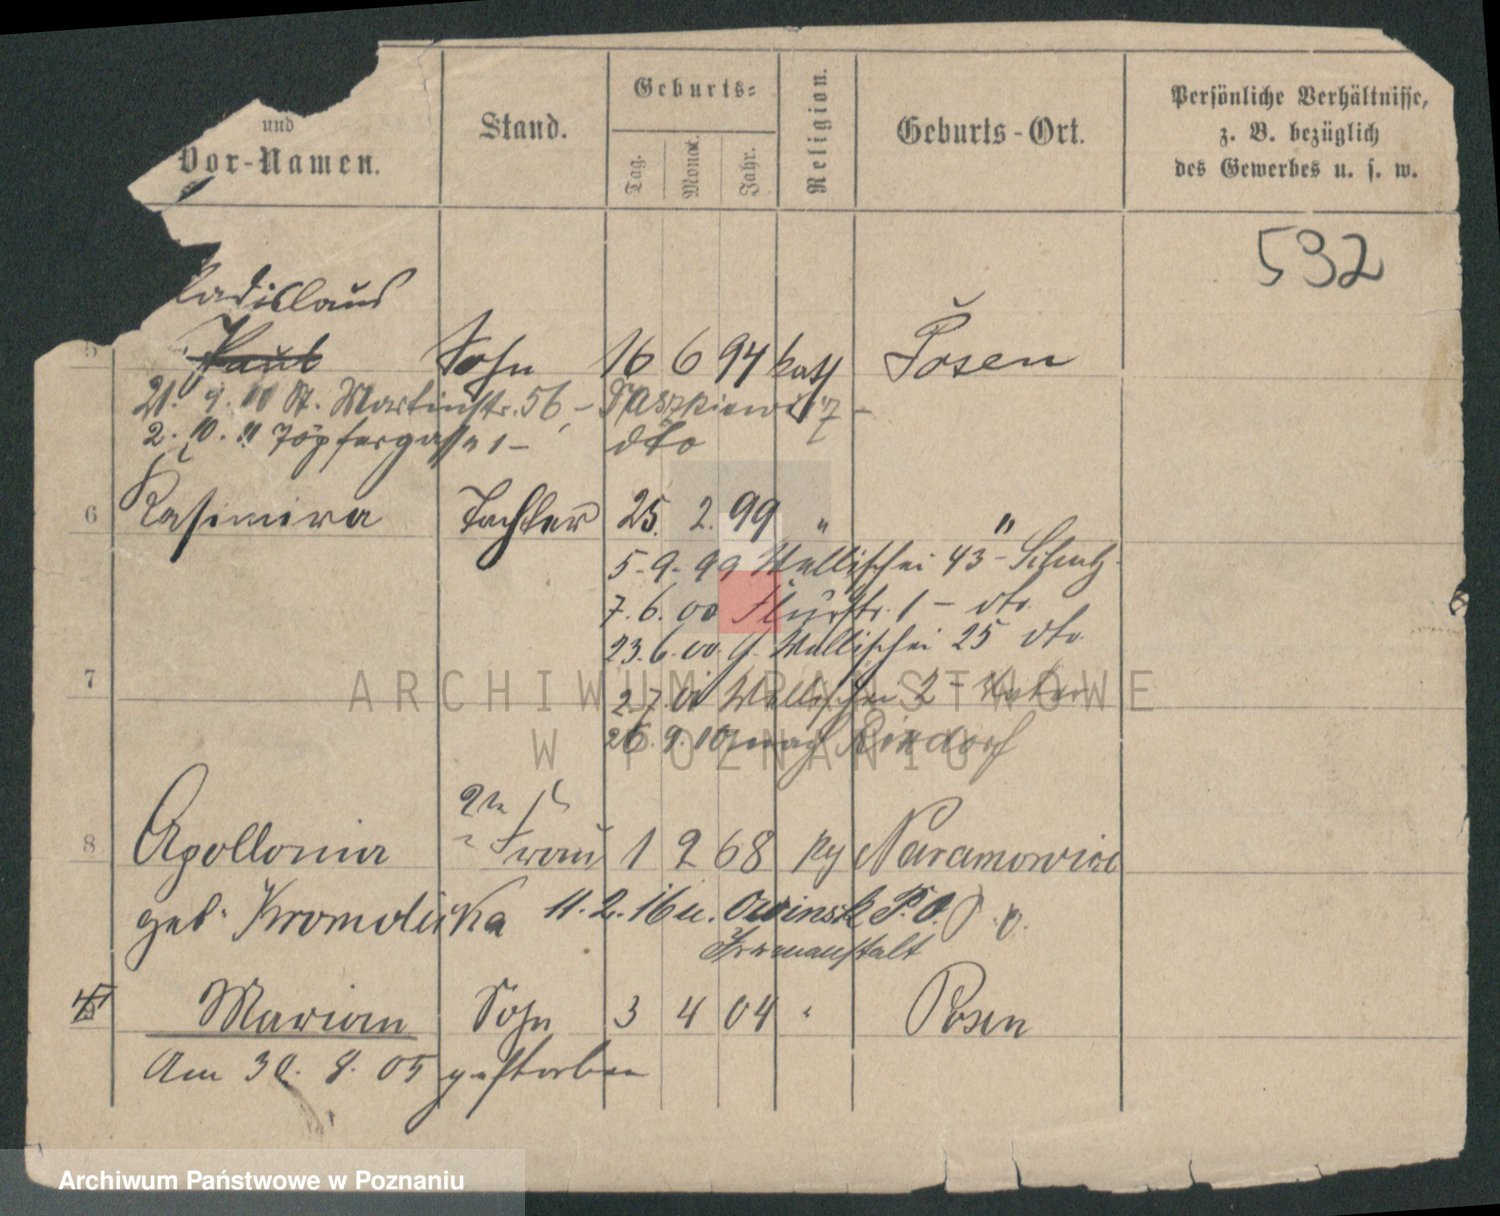 und
Vor-Namen.
Stand.
Geburts-
Tag.
Monat.
Jahr.
Religion.
Geburts-Ort.
Persönliche Verhältnisse,
z. B. bezüglich
des Gewerbes u. s. w.
532
ladislaus
5 Paul Sohn 16 6 94 kath Posen
21. 9. 10 St. Martinstr. 56, –
2. 10. 11 Töpfergasse 1 – dto
6 Kasimira Tochter 25. 2. 99 " "
5. 9. 99 Wallischei 43 – Schulz
7. 6. 00 Flurstr. 1 – dto.
23. 6. 00 Wallischei 25 dto
7
2. 7. 01 Wallischei 2 –
26. 9. 10 nach Rixdorf
2te
8 Apollonia Frau 1 2 68 Naramowice
geb. 11. 2. 16 u. Owinsk P. O.
Irrenanstalt
Marian Sohn 3 4 04 " Posen
Am 30. 8. 05 gestorben
ARCHIWUM PAŃSTWOWE
W POZNANIU
Archiwum Państwowe w Poznaniu